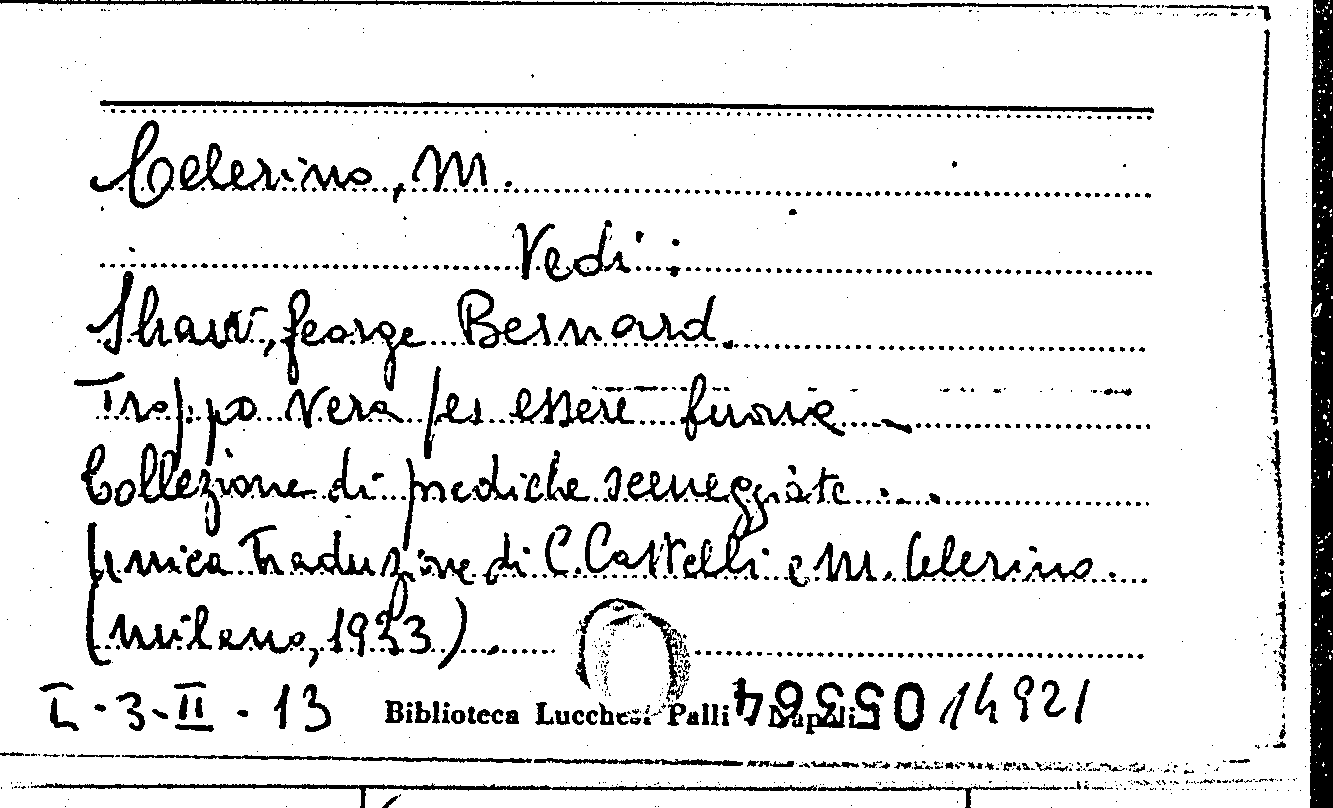 Celerino, M.
Vedi:
Shaw, George Bernard.
Troppo vera per essere buona.
Collezione di prediche sceneggiate...
Unica traduzione di C. Castelli e M. Celerino.
(Milano, 1933).
I-3-II-13 Biblioteca Lucchesi Palli Napoli 14921